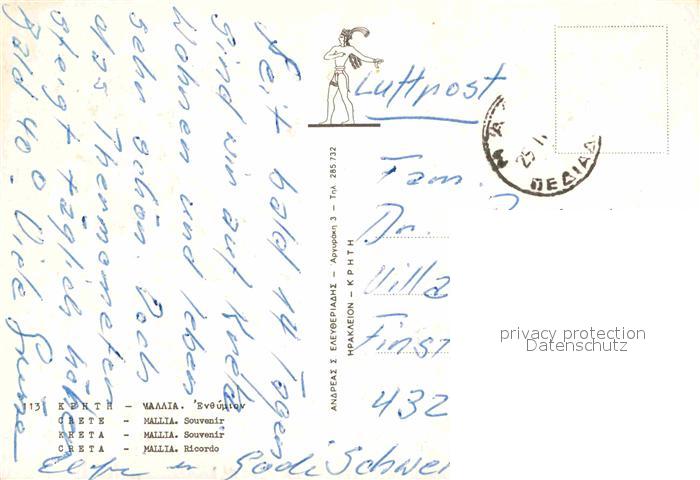 Seit bald 14 Tagen
sind wir auf Kreta
Wohnen und leben
sehr schön. Doch
das Thermometer
steigt täglich höher
Bald 40°. Viele Grüsse
Luftpost
Fam.
Dr.
Villa
Fings
432
ΠΕΔΙΑΔ
ΑΝΔΡΕΑΣ Σ. ΕΛΕΥΘΕΡΙΑΔΗΣ — Αργυράκη 3 — Τηλ. 285.732
ΗΡΑΚΛΕΙΟΝ — ΚΡΗΤΗ
13 ΚΡΗΤΗ - ΜΑΛΛΙΑ. Ἐνθύμιον
CRETE - MALLIA. Souvenir
KRETA - MALLIA. Souvenir
CRETA - MALLIA. Ricordo
privacy protection
Datenschutz